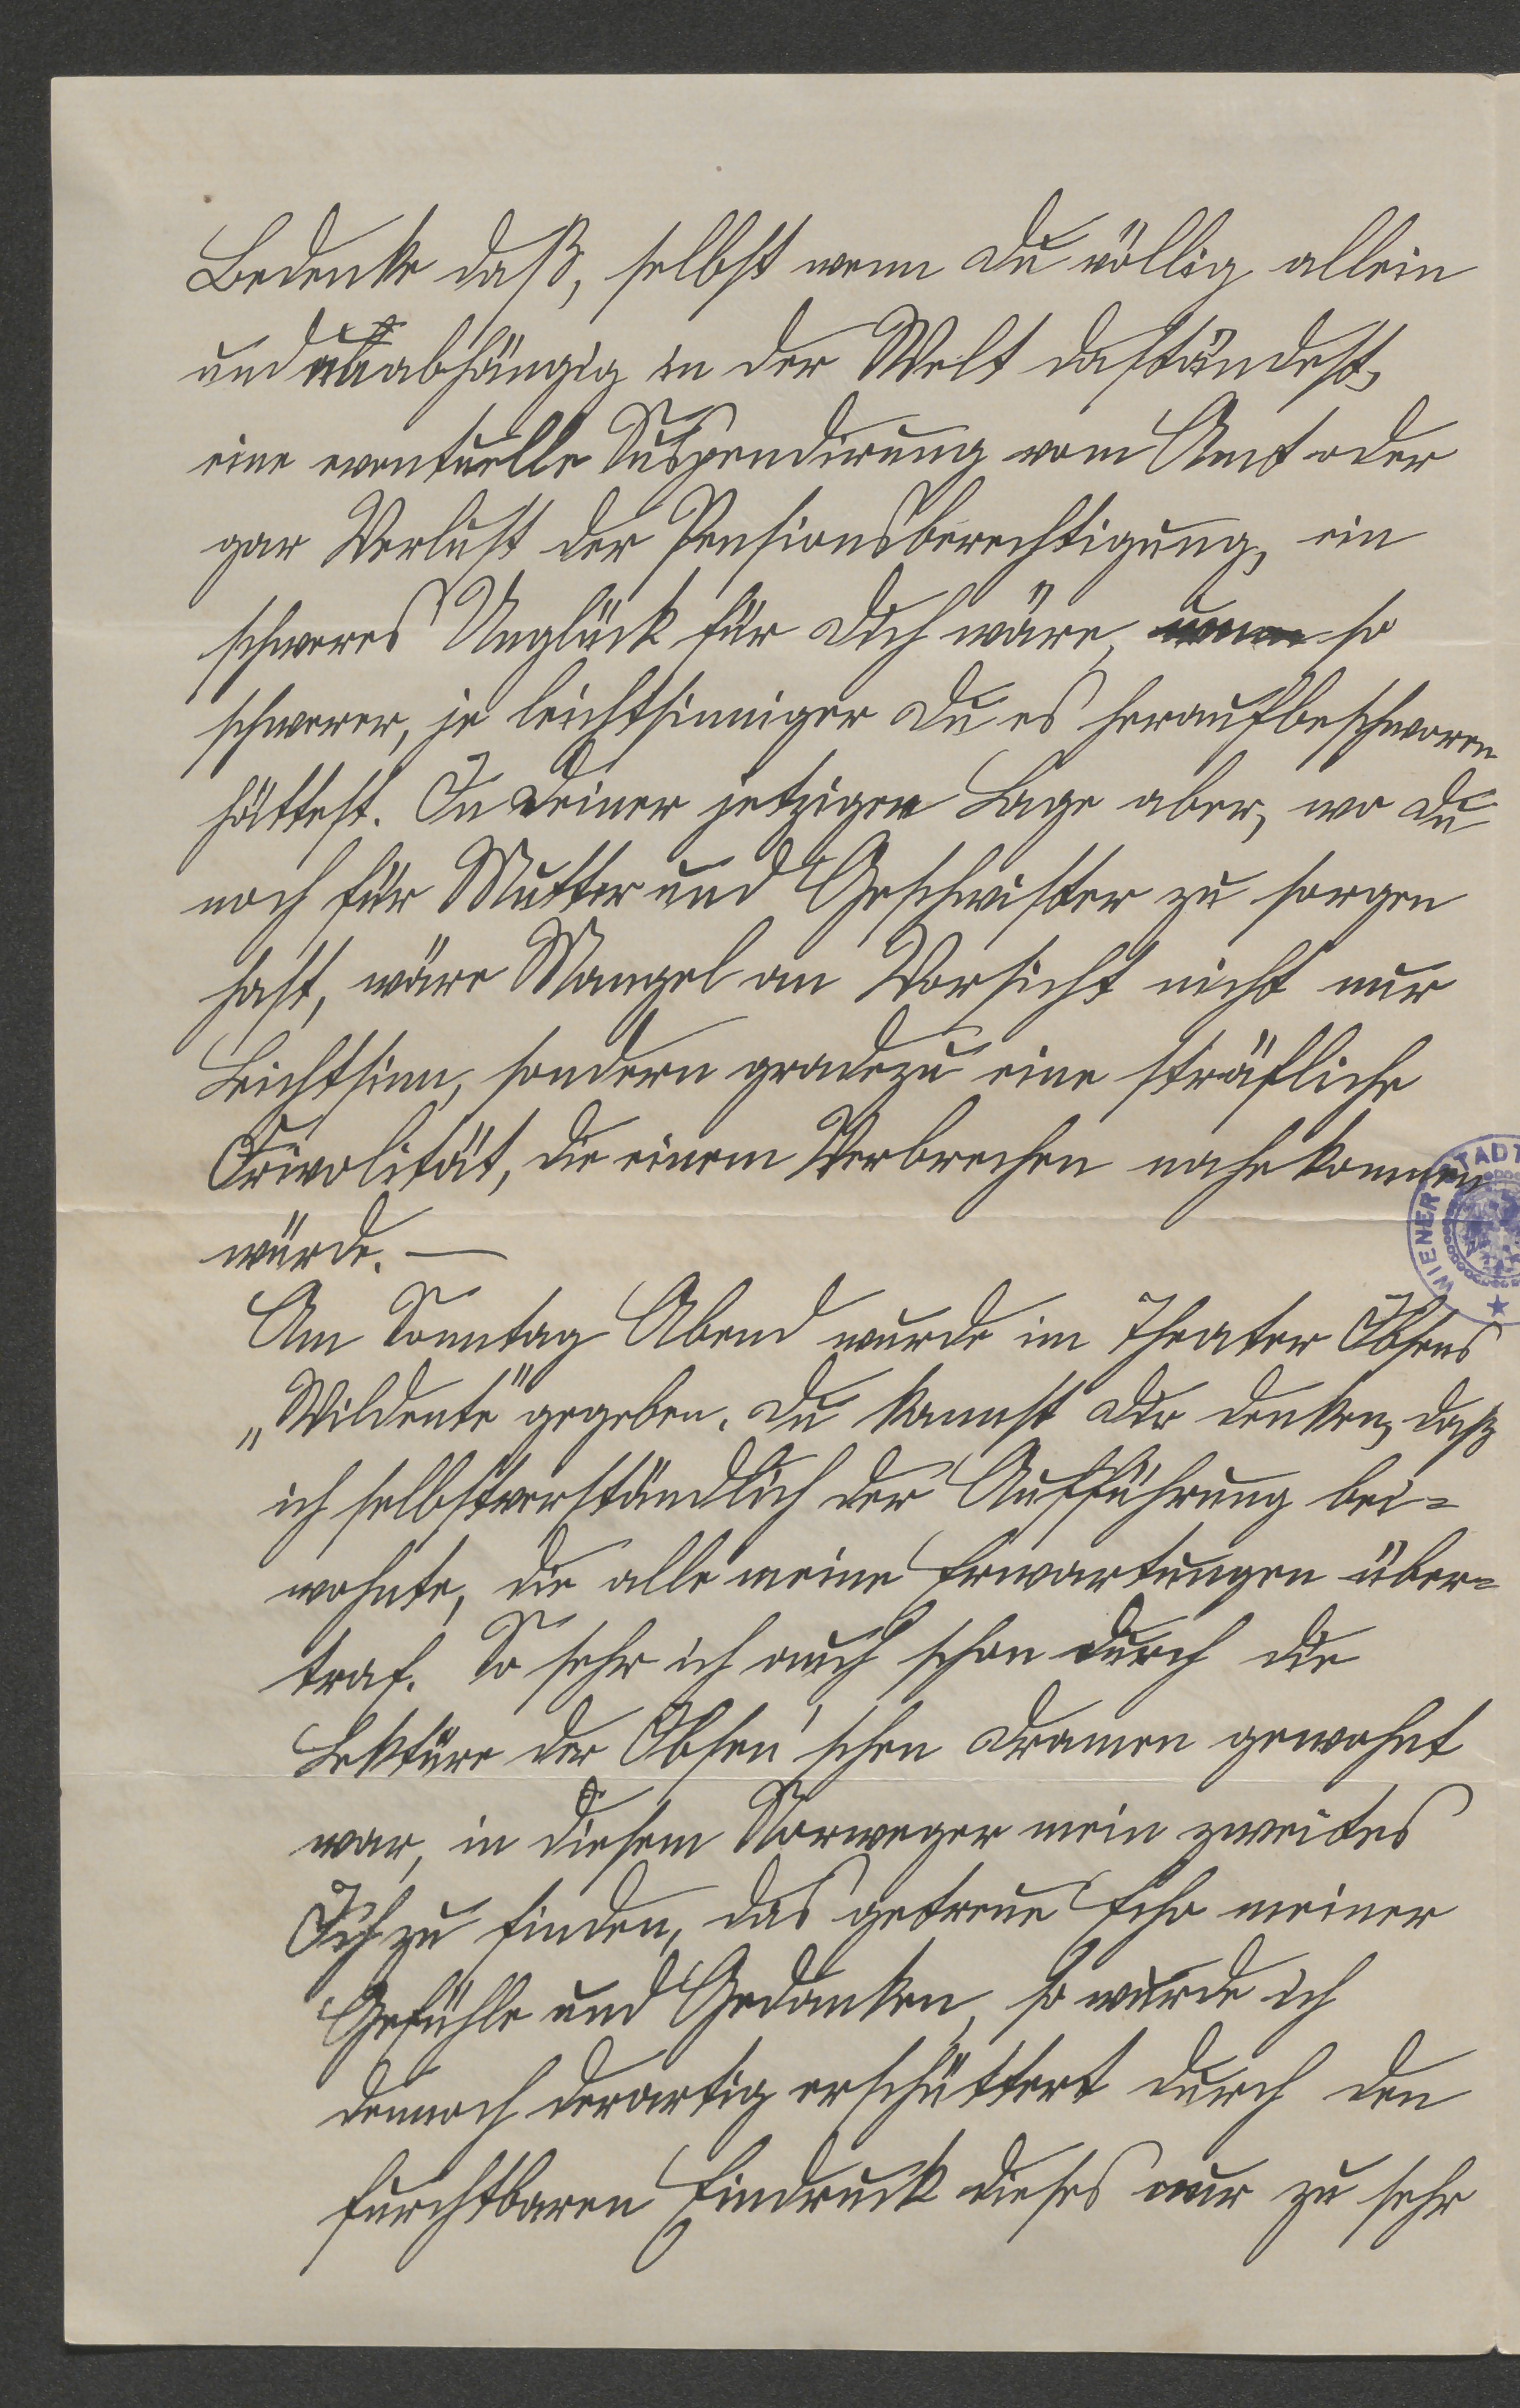 Bedenke daß, selbst wenn Du völlig allein
und unabhängig in der Welt daständest,
eine eventuelle Suspendirung vom Amt oder
gar Verlust der Pensionsberechtigung, ein
schweres Unglück für Dich wäre, um so
schwerer, je leichtsinniger Du es heraufbeschworen
hättest. In Deiner jetzigen Lage aber, wo Du
noch für Mutter und Geschwister zu sorgen
hast, wäre Mangel an Vorsicht nicht nur
Leichtsinn, sondern gradezu eine sträfliche
Frivolität, die einem Verbrechen nahekommen
würde. —
WIENER STADT
Am Sonntag Abend wurde im Theater Ibsens
„Wildente" gegeben. Du kannst Dir denken, daß
ich selbstverständlich der Aufführung bei-
wohnte, die alle meine Erwartungen über-
traf. So sehr ich auch schon durch die
Lektüre der Ibsen'schen Dramen gewohnt
war, in diesem Norweger mein zweites
Ich zu finden, das getreue Echo meiner
Gefühle und Gedanken, so wurde ich
dennoch derartig erschüttert durch den
furchtbaren Eindruck dieses nur zu sehr